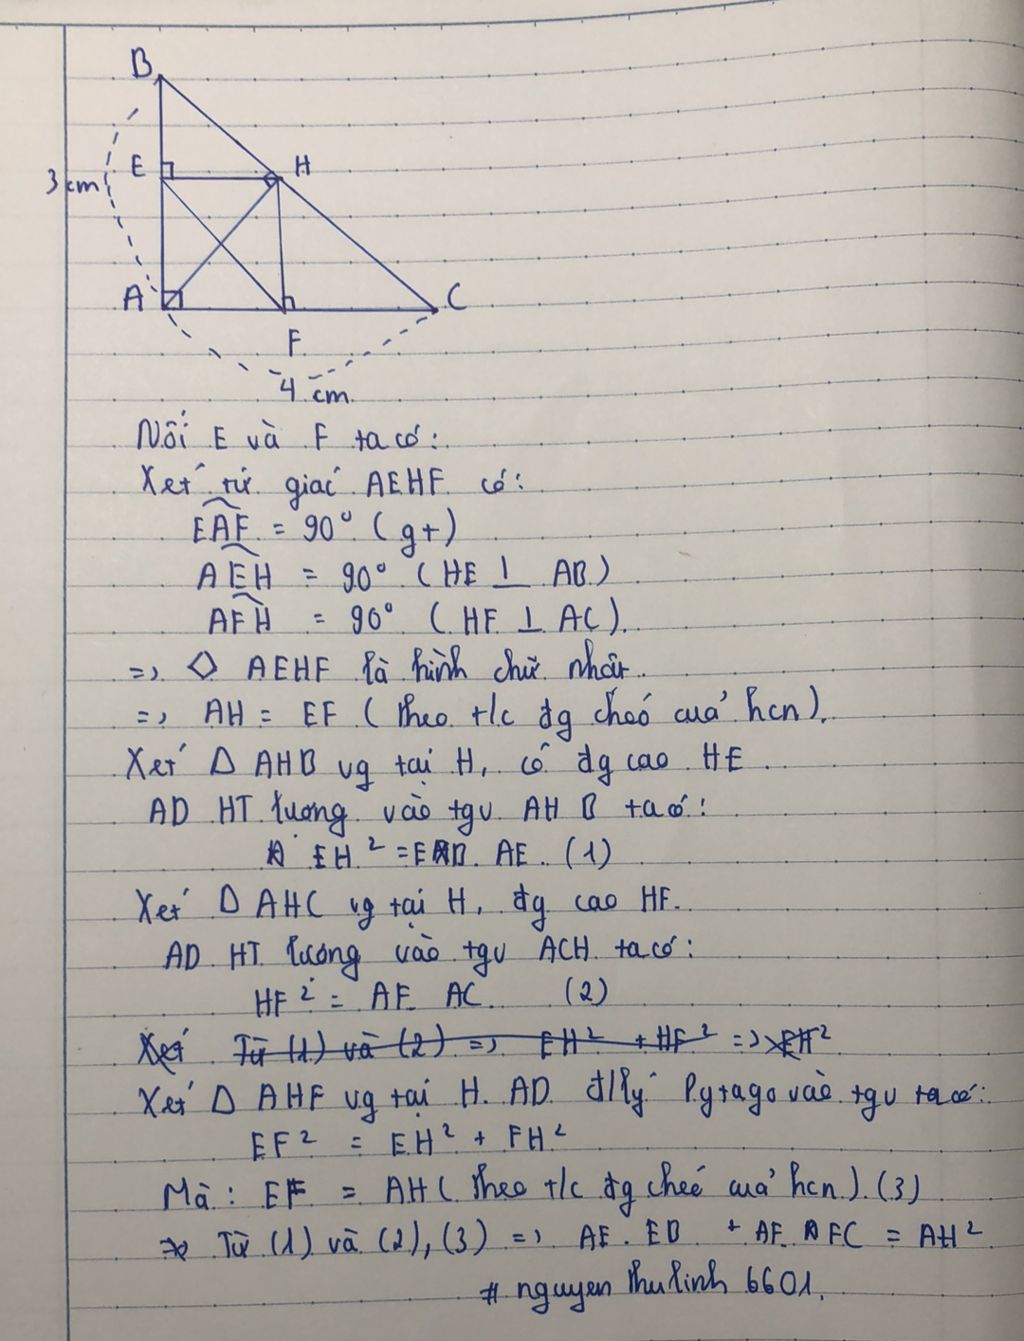 B
E
H
3 cm
A
C
F
4 cm.
Nối E và F ta có:
Xét tứ giác AEHF có:
EAF = 90° (gt)
AEH = 90° (HE ⊥ AB)
AFH = 90° (HF ⊥ AC).
=> ◇ AEHF là hình chữ nhật.
=> AH = EF (theo t/c đg chéo của hcn).
Xét Δ AHB vg tại H, có đg cao HE.
AD HT lương vào tgv AHB ta có:
EH² = EB. AE. (1)
Xét Δ AHC vg tại H, đg cao HF.
AD HT lương vào tgv ACH ta có:
HF² = AF AC (2)
Xét Từ (1) và (2) => EH² + HF² => EH²
Xét Δ AHF vg tại H. AD đ/lý Pytago vào tgv ta có:
EF² = EH² + FH²
Mà: EF = AH (theo t/c đg cheé của hcn). (3)
=> Từ (1) và (2), (3) => AE. EB + AF. FC = AH²
# nguyen thu linh 6601.